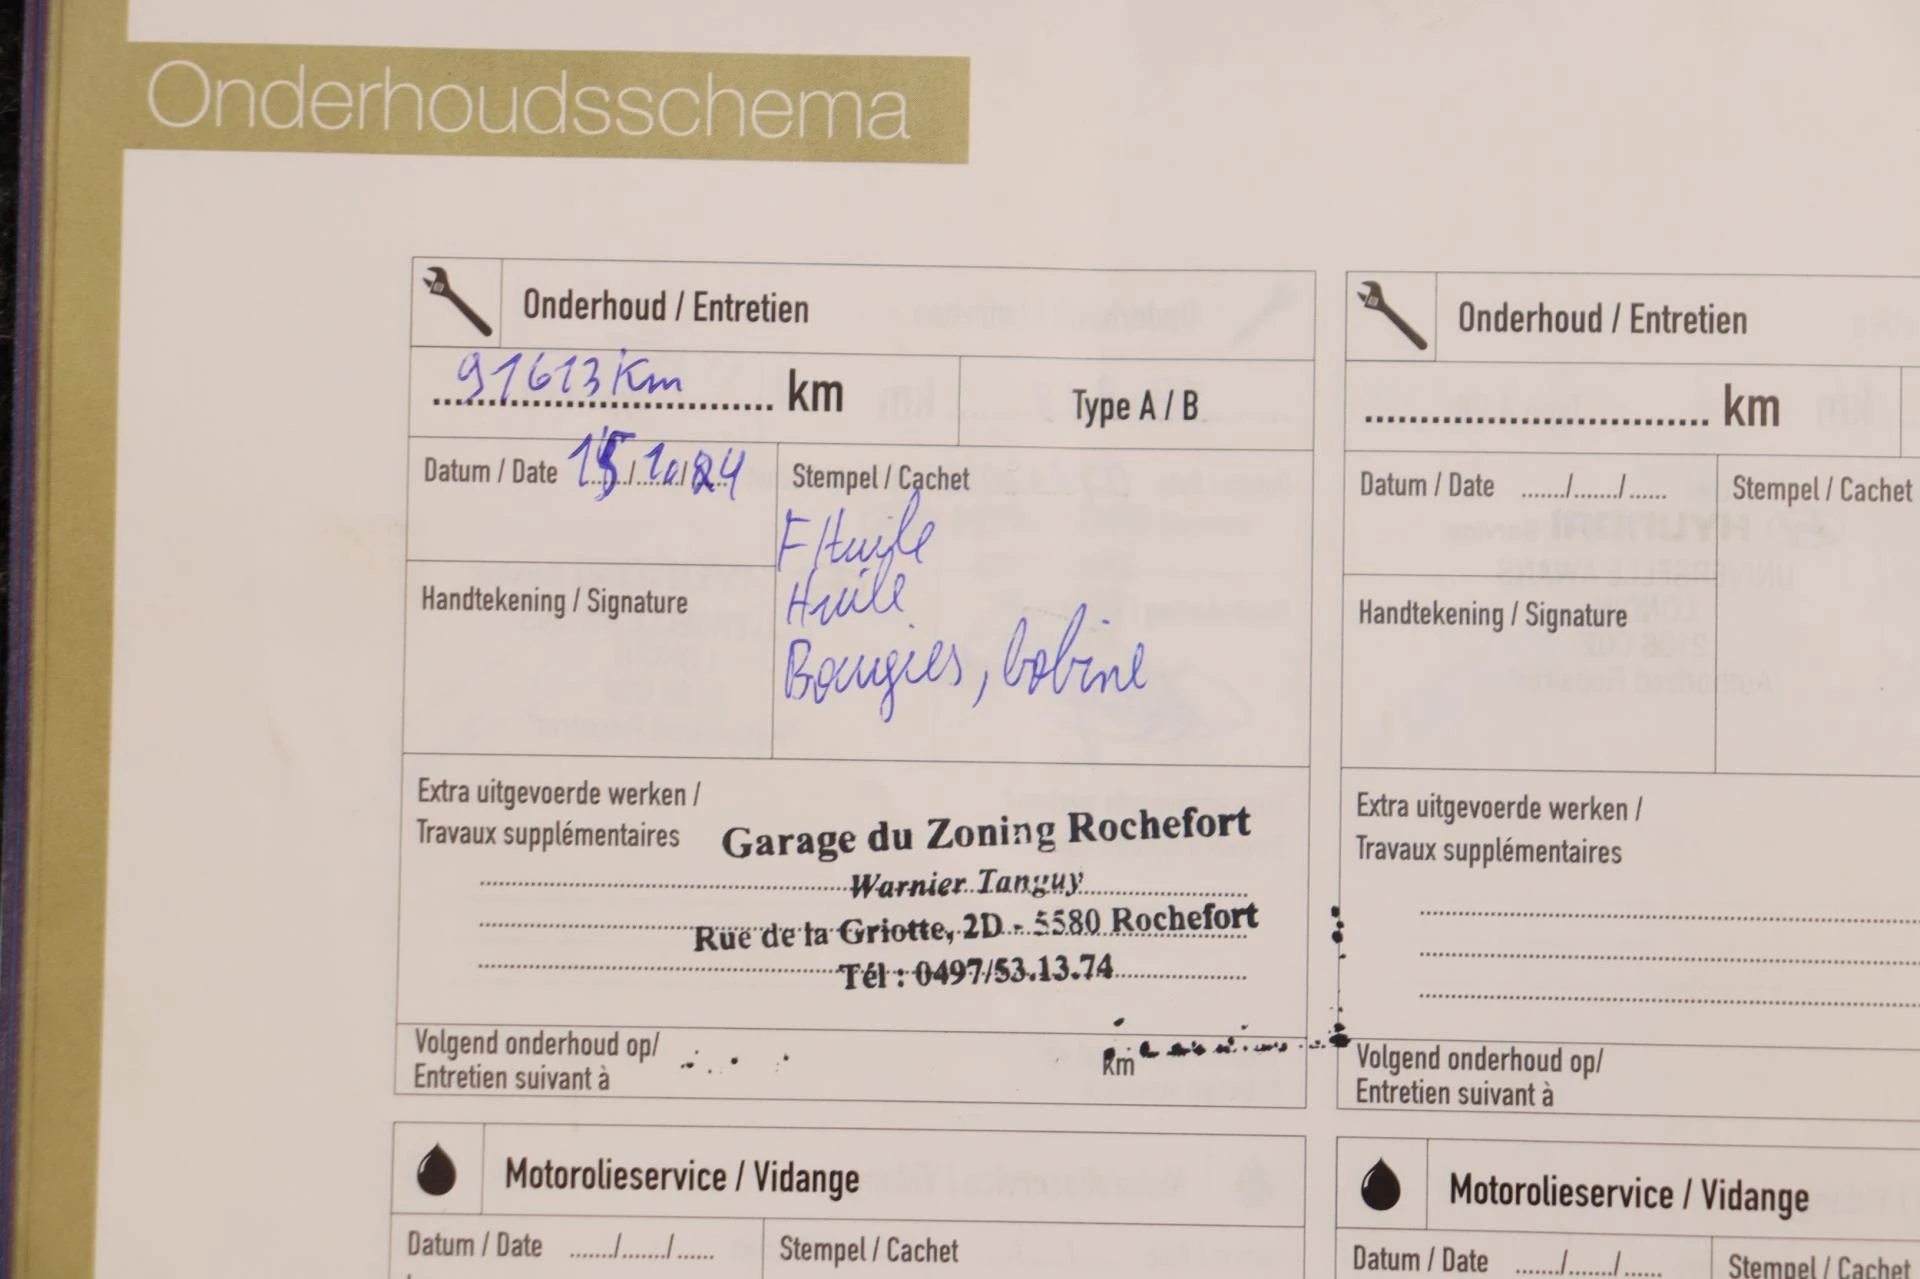 Onderhoudsschema
Onderhoud / Entretien
91613 Km
km
Type A / B
Datum / Date 15/10/24
Stempel / Cachet
F Huile
Huile
Bougies, bobine
Handtekening / Signature
Extra uitgevoerde werken /
Travaux supplémentaires
Garage du Zoning Rochefort
Warnier Tanguy
Rue de la Griotte, 2D - 5580 Rochefort
Tél : 0497/53.13.74
Volgend onderhoud op/
Entretien suivant à
km
Motorolieservice / Vidange
Datum / Date ......./......./......
Stempel / Cachet
Onderhoud / Entretien
km
Datum / Date ......./......./......
Stempel / Cachet
Handtekening / Signature
Extra uitgevoerde werken /
Travaux supplémentaires
Volgend onderhoud op/
Entretien suivant à
Motorolieservice / Vidange
Datum / Date ......./......./......
Stempel / Cachet